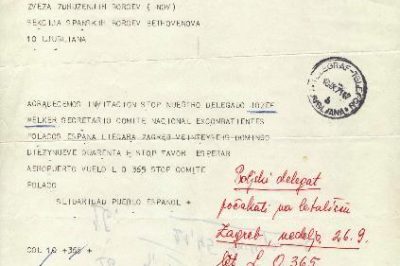 ZVEZA ZDRUZENJIH BORCEV ( NOV)
SEKCIJA SPANSKIH BORCEV BETHOVENOVA
10 LJUBLJANA
TELEGRAF-TELEFON
LJUBLJANA
AGRADECEMOS INVITACION STOP NUESTRO DELEGADO JOZEF
WELKER SECRETARIO COMITE NACIONAL EXCOMBATIENTES
POLACOS ESPANA LLEGARA ZAGREB VEINTEYSEIS DOMINGO
DIEZYNUEVE CUARENTA H STOP FAVOR ESPERAR
AEROPUERTO VUELO L O 365 STOP COMITE
POLACO
SLIDARIDAD PUEBLO ESPANOL +
COL 10 +365 +
Poljski delegat
počakati na letališču
Zagreb, nedelja 26.9.
let L O 365